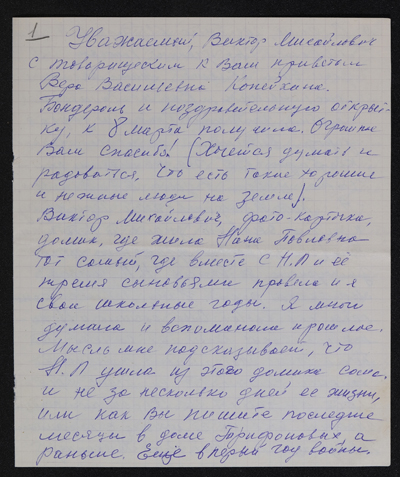 1
Уважаемый, Виктор Михайлович
с товарищеским к Вам приветом
Вера Васильевна Копейкина.
Бандероль и поздравительную открыт-
ку, к 8 Марта получила. Огромное
Вам спасибо! (Хочется думать и
радоваться, что есть такие хорошие
и нежные люди на земле).
Виктор Михайлович, фото-карточка,
домик, где жила Нана Павловна
тот самый, где вместе с Н.П и её
тремя сыновьями провела и я
свои школьные годы. Я много
думала и вспоминала прошлое.
Мысль мне подсказывает, что
Н.П ушла из этого домика сама.
и не за несколько дней её жизни,
или как Вы пишите последние
месяцы в доме Трифоновых, а
раньше. Ещё в первый год войны.